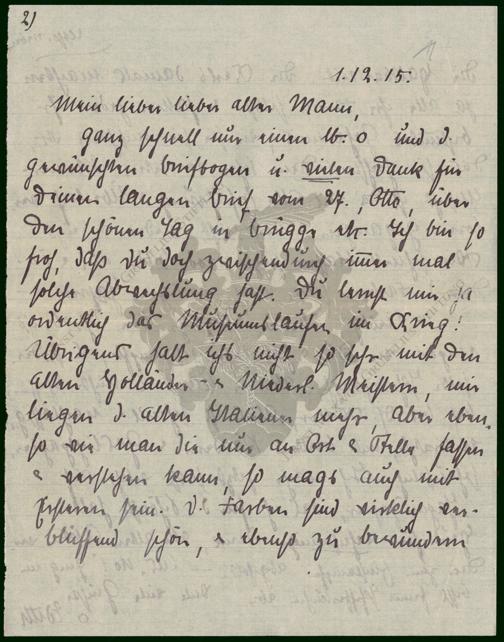 2)
1.12.15.
Mein lieber lieber alter Mann,
ganz schnell nur einen lb. o und d.
gewünschten briefbogen u. vielen Dank für
deinen langen brief vom 27., Otto, über
den schönen Tag in brügge etc. Ich bin so
froh, daß du doch zwischendurch immer mal
solche Abwechslung hast. Du lernst mir ja
ordentlich das Museumslaufen im Krieg!
Übrigens halt ichs nicht so sehr mit den
alten Holländer- & Niederl. Meistern, mir
liegen d. alten Italiener mehr, Aber eben
so wie man die nur an Ort & Stelle fassen
& verstehen kann, so mags auch mit
Ersteren sein. D. Farben sind wirklich ver-
blüffend schön, & ebenso zu bewundern